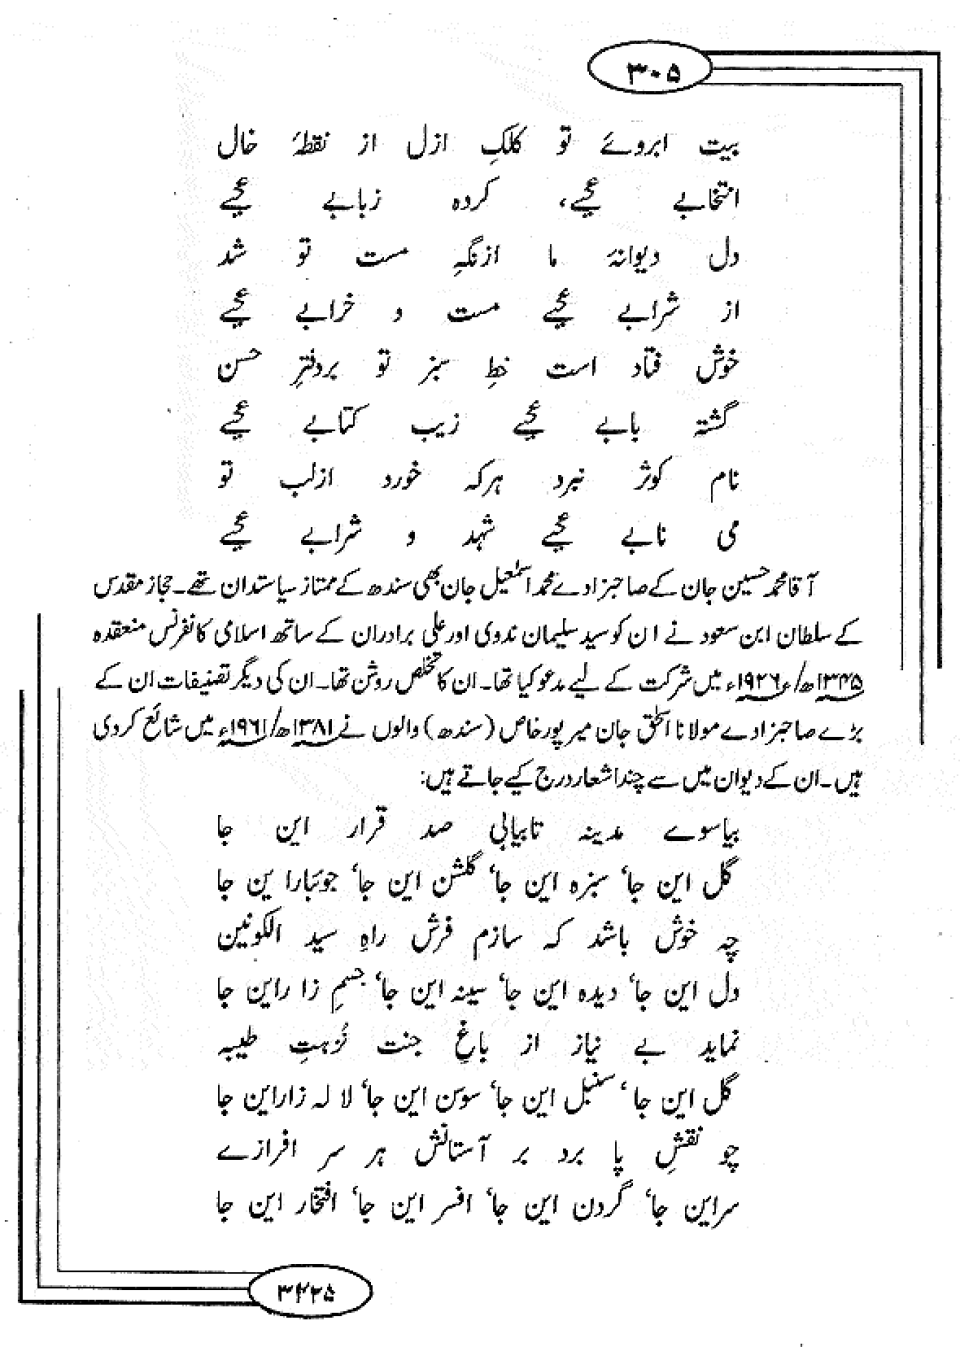 ۳۰۵
بیت ابروے تو کلکِ ازل از نقطۂ خال
انتخابے عجبے، کردہ زبابے عجبے
دل دیوانۂ ما ازنگہِ مست تو شد
از شرابے عجبے مست و خرابے عجبے
خوش فتاد است خطِ سبز تو بردفترِ حسن
گشتہ بابے عجبے زیب کتابے عجبے
نام کوثر نبرد ہرکہ خورد ازلب تو
می نابے عجبے شہد و شرابے عجبے
آقا محمد حسین جان کے صاحبزادے محمد اسمٰعیل جان بھی سندھ کے ممتاز سیاستدان تھے۔ حجاز مقدس
کے سلطان ابن سعود نے ان کو سید سلیمان ندوی اور علی برادران کے ساتھ اسلامی کانفرنس منعقدہ
۱۳۴۵ھ/۱۹۲۶ء میں شرکت کے لیے مدعو کیا تھا۔ ان کا تخلص روشن تھا۔ ان کی دیگر تصنیفات ان کے
بڑے صاحبزادے مولانا اسحٰق جان میرپورخاص (سندھ) والوں نے ۱۳۸۱ھ/۱۹۶۱ء میں شائع کردی
ہیں۔ ان کے دیوان میں سے چند اشعار درج کیے جاتے ہیں:
بیاسوے مدینہ تابیابی صد قرار این جا
گل این جا، سبزہ این جا، گلشن این جا، جوئبارا ین جا
چہ خوش باشد کہ سازم فرش راہِ سید الکونین
دل این جا، دیدہ این جا، سینہ این جا، جسمِ زا راین جا
نماید بے نیاز از باغِ جنت نُزہتِ طیبہ
گل این جا، سنبل این جا، سوسن این جا، لا لہ زاراین جا
چو نقشِ پا برد بر آستانش ہر سر افرازے
سراین جا، گردن این جا، افسر این جا، افتخار این جا
۳۲۲۵